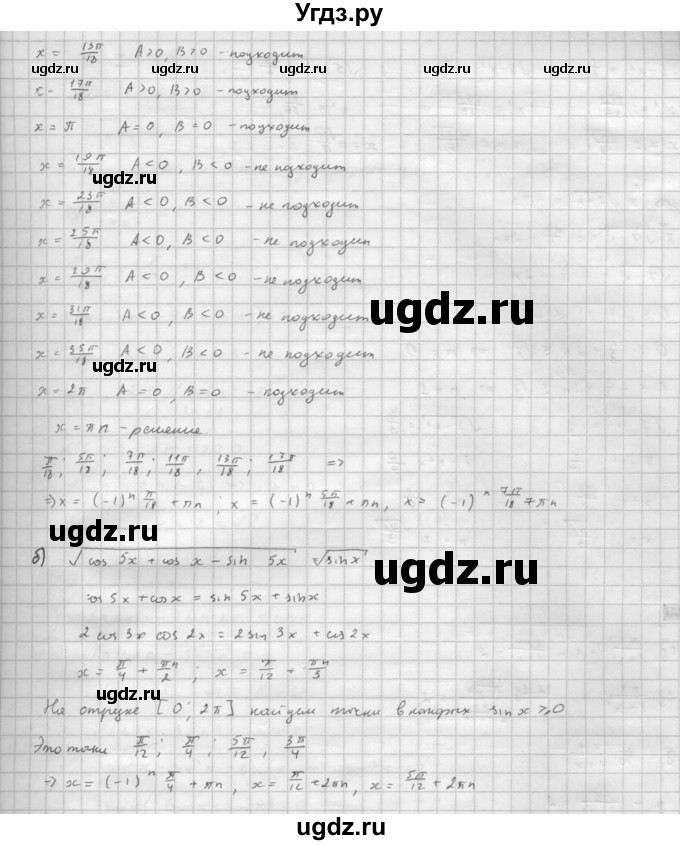 Угдз.ру
x = 13π/18 A>0, B>0 - подходит
ugdz.ru ugdz.ru ugdz.ru
x = 17π/18 A>0, B>0 - подходит
x = π A=0, B=0 - подходит
x = 19π/18 A<0 B<0 - не подходит
ugdz.ru
x = 23π/18 A<0, B<0 - не подходит
x = 25π/18 A<0, B<0 - не подходит
x = 29π/18 A<0, B<0 - не подходит
x = 31π/18 A<0, B<0 - не подходит
ugdz.ru
x = 35π/18 A<0, B<0 - не подходит
ugdz.ru
x = 2π A=0, B=0 - подходит
x = πn - решение.
π/18; 5π/18; 7π/18; 11π/18, 13π/18; 17π/18 =>
=> x = (-1)^n π/18 + πn; x = (-1)^n 5π/18 + πn, x = (-1)^n 7π/18 + πn
ugdz.ru ugdz.ru ugdz.ru
б) √cos 5x + cos x - sin 5x = √sin x
ugdz.ru
cos 5x + cos x = sin 5x + sin x
2 cos 3x cos 2x = 2 sin 3x + cos 2x
ugdz.ru
x = π/4 + πn/2; x = π/12 + πn/3
На отрезке [0; 2π] найдем точки в которых sin x ≥ 0
Это точки π/12; π/4; 5π/12, 3π/4
ugdz.ru
=> x = (-1)^n π/4 + πn, x = π/12 + 2πn, x = 5π/12 + 2πn
ugdz.ru